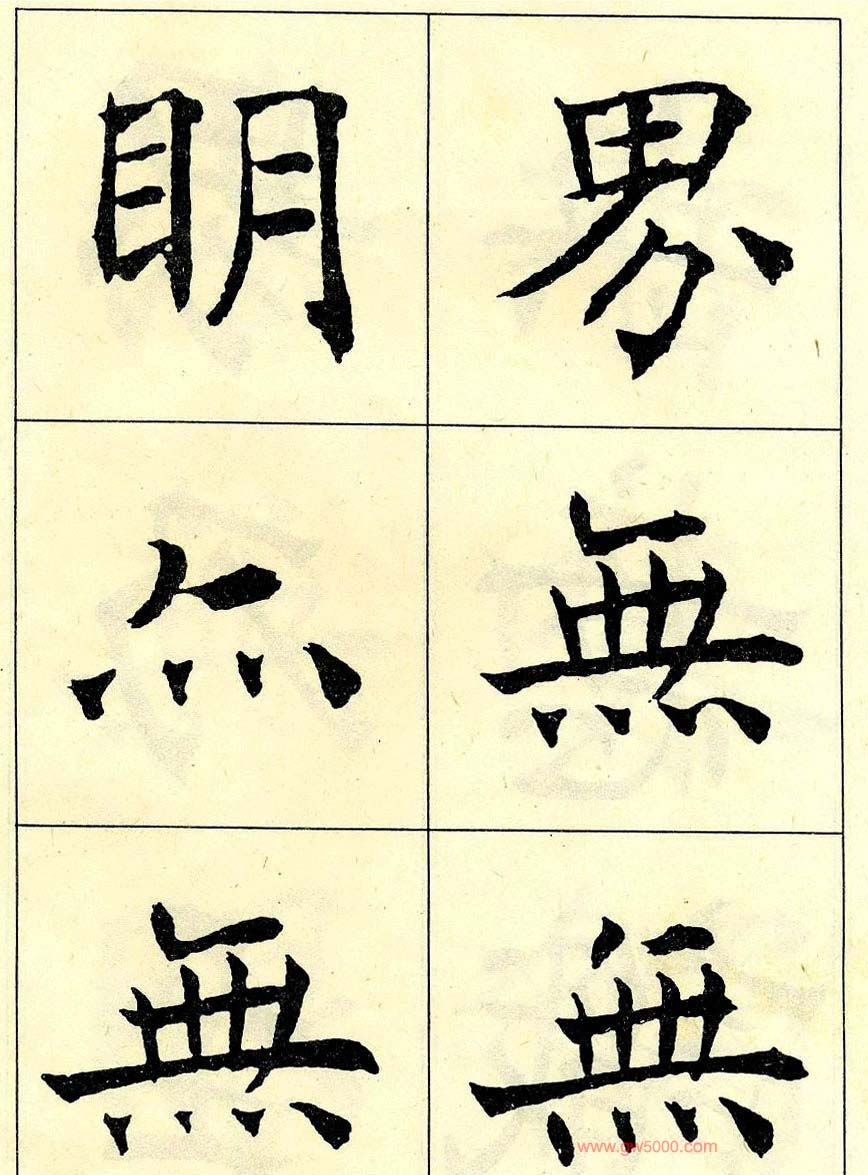 界無無
明亦無
www.gw5000.com